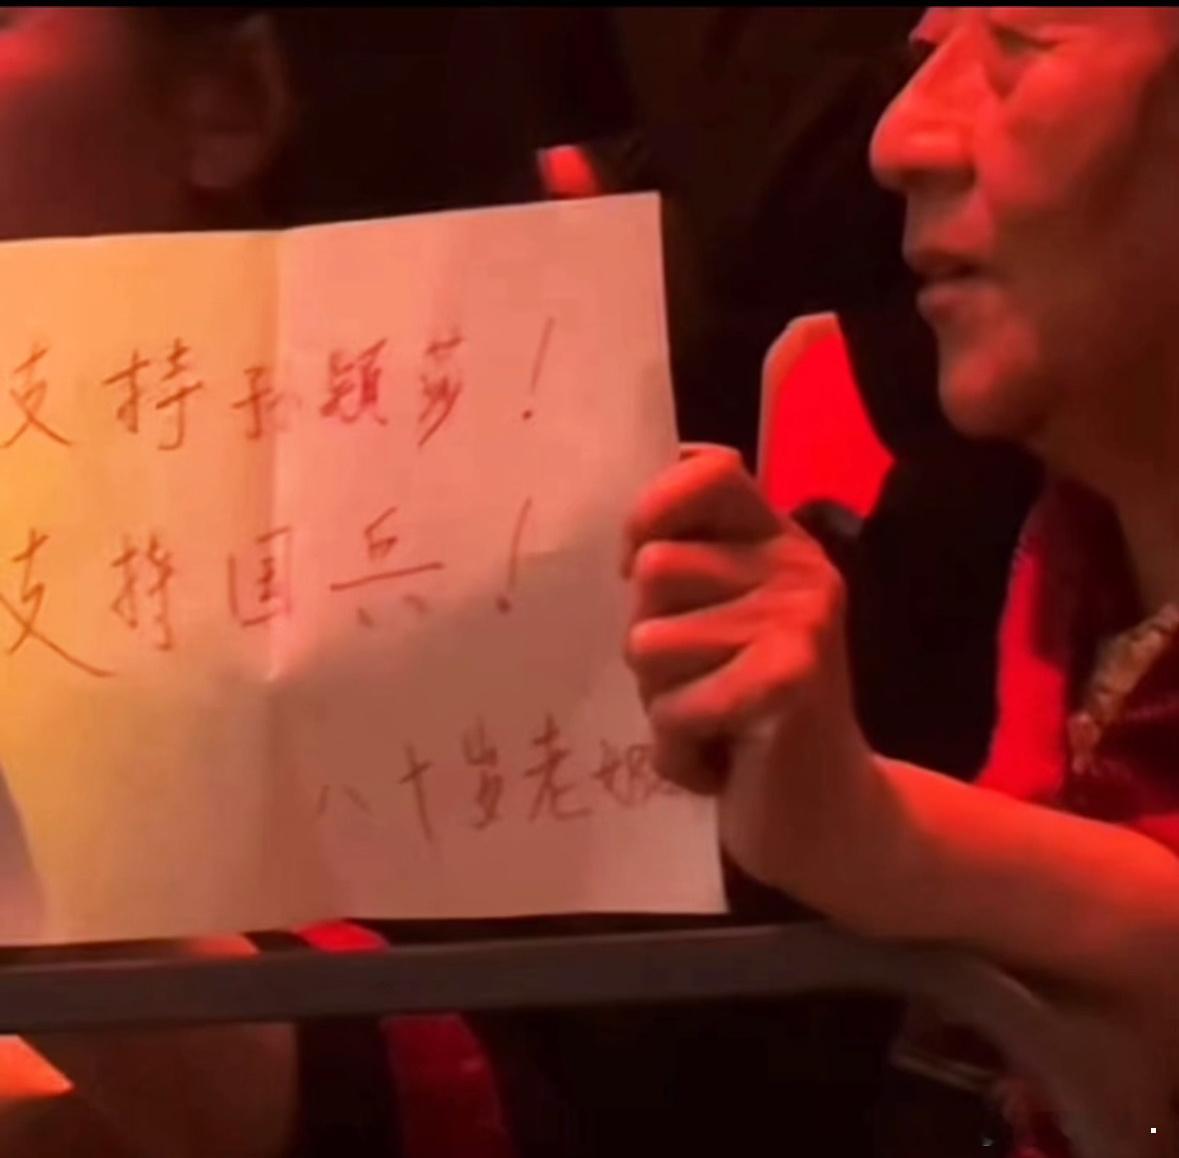 支持孙颖莎！
支持国兵！
八十岁老